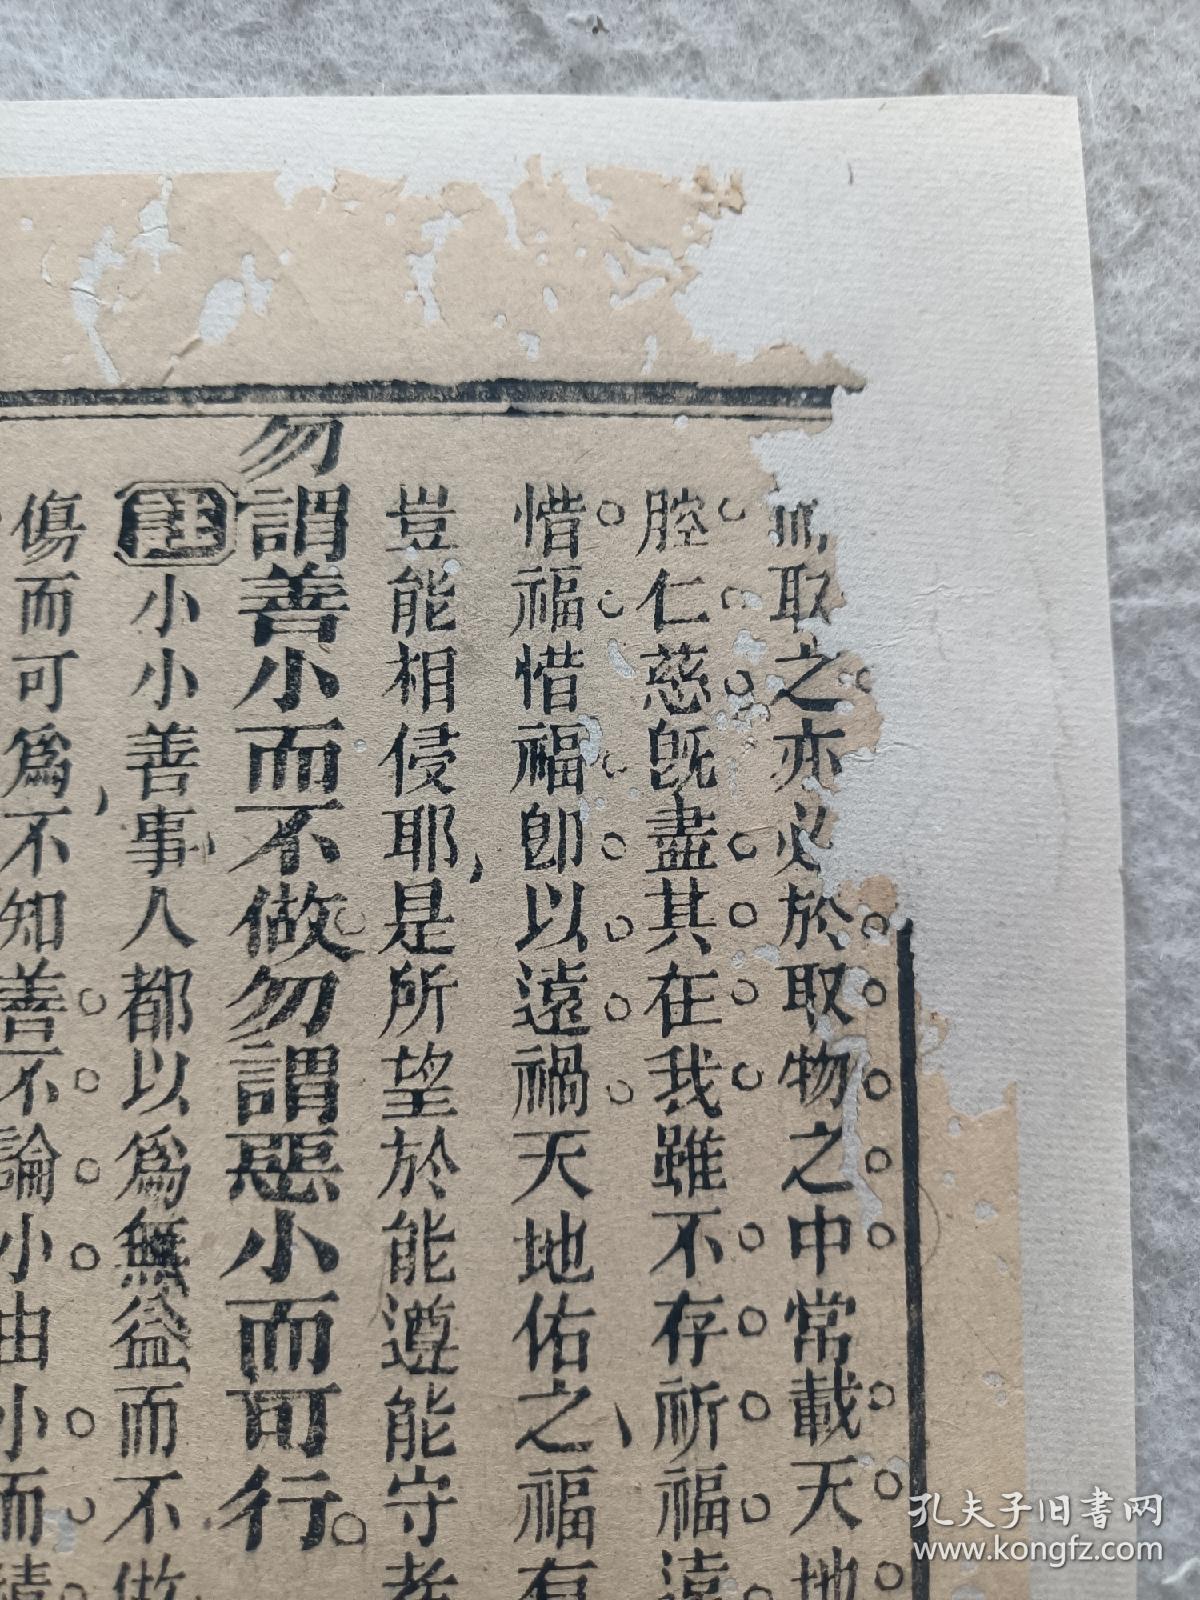 取之亦必於取物之中常載天地
腔仁慈既盡其在我雖不存祈福遠
惜福惜福卽以遠禍天地佑之福有
豈能相侵耶是所望於能遵能守者
勿謂善小而不做勿謂惡小而可行
註小小善事人都以爲無益而不做
傷而可爲不知善不論小由小而積
孔夫子旧書网
www.kongfz.com